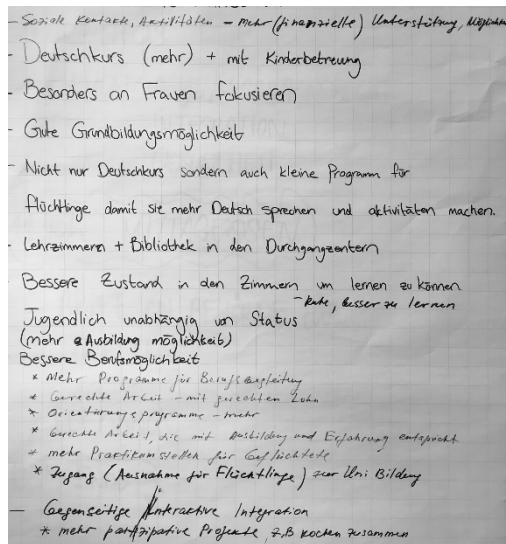 - Soziale Kontakte, Aktilitäten - mehr (finanzielle) Unterstützung, Möglichk
- Deutschkurs (mehr) + mit Kinderbetreuung
- Besonders an Frauen fokusieren
- Gute Grundbildungsmöglichkeit
- Nicht nur Deutschkurs sondern auch kleine Programm für
flüchtlinge damit sie mehr Deutsch sprechen und aktivitäten machen.
- Lehrzimmern + Bibliothek in den Durchgangzentern
Bessere Zustand in den Zimmern um lernen zu können
- Ruhe, besser zu lernen
Jugendlich unabhängig von Status
(mehr Ausbildung möglichkeit)
Bessere Berufsmöglichkeit
* Mehr Programme für Berufsbegleitung
* Gerechte Arbeit - mit gerechten Lohn
* Orientierungsprogramme - mehr
* Gerechte Arbeit, die mit Ausbildung und Erfahrung entspricht
* mehr Praktikumstellen für Geflüchtete
* Zugang (Ausnahme für Flüchtlinge) zur Uni Bildung
- Gegenseitige Interaktive Integration
* mehr partizipative Projekte z,B kochen zusammen